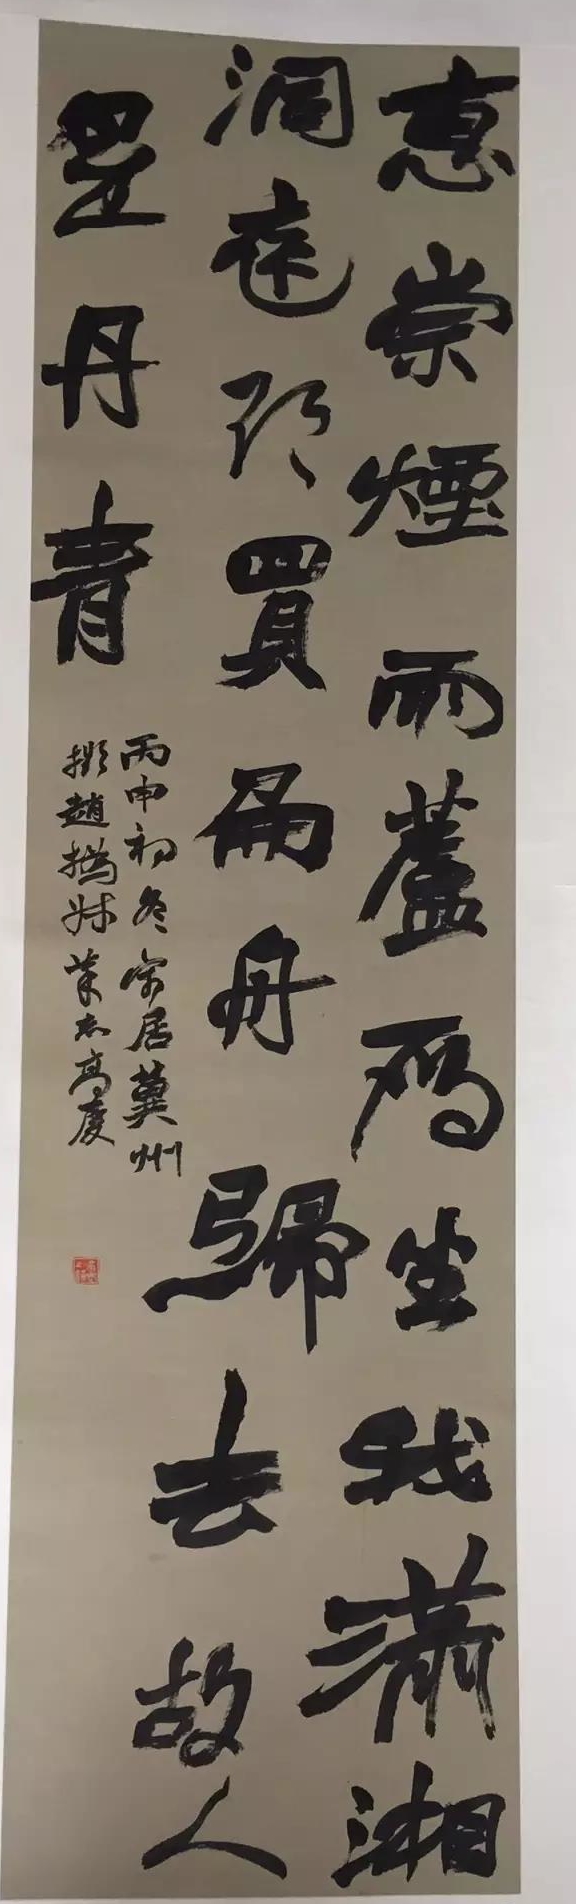 惠崇煙雨蘆雁坐我瀟湘
洞庭欲買扁舟歸去故人
是丹青
丙申初冬客居冀州
擬趙撝叔筆意高慶